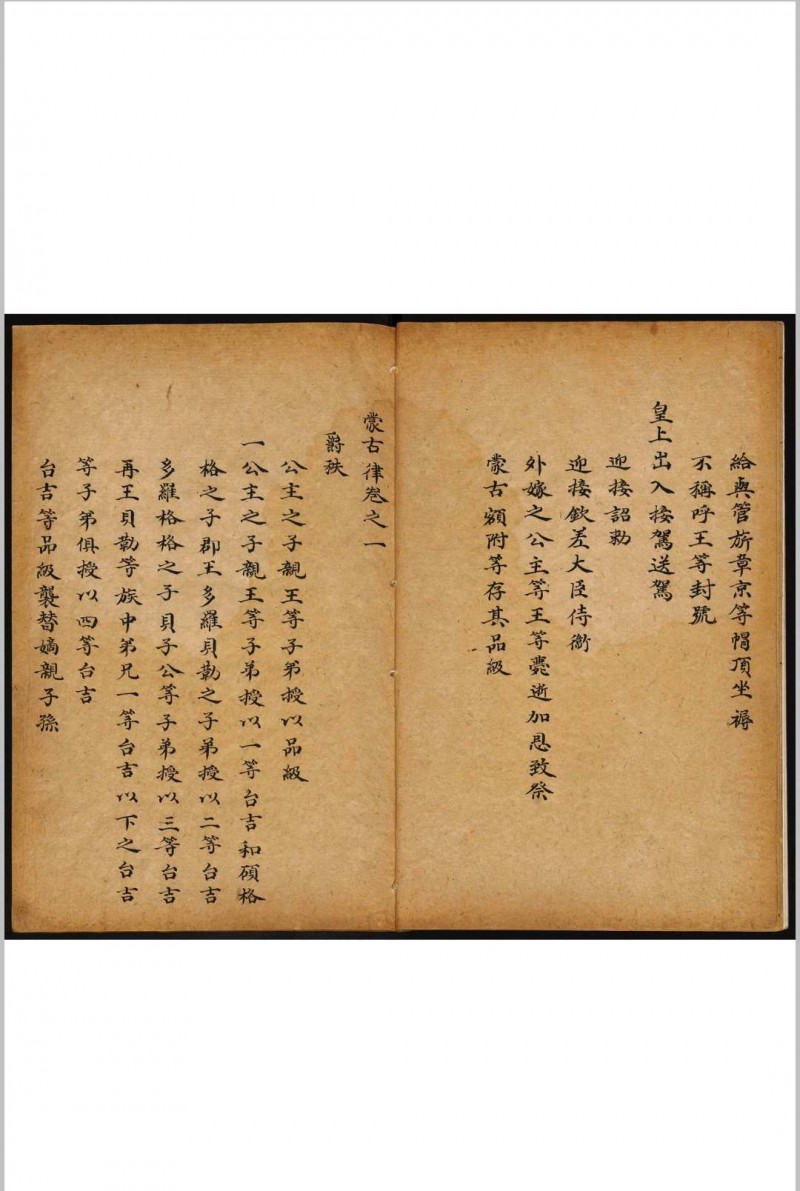 給與管旂章京等帽頂坐褥
不稱呼王等封號
皇上出入接駕送駕
迎接詔勅
迎接欽差大臣侍衛
外嫁之公主等王等薨逝加恩致祭
蒙古額附等存其品級
蒙古律卷之一
爵秩
公主之子親王等子弟授以品級
一公主之子親王等子弟授以一等台吉和碩格
格之子郡王多羅貝勒之子弟授以二等台吉
多羅格格之子貝子公等子弟授以三等台吉
再王貝勒等族中弟兄一等台吉以下之台吉
等子弟俱授以四等台吉
台吉等品級襲替嫡親子孫